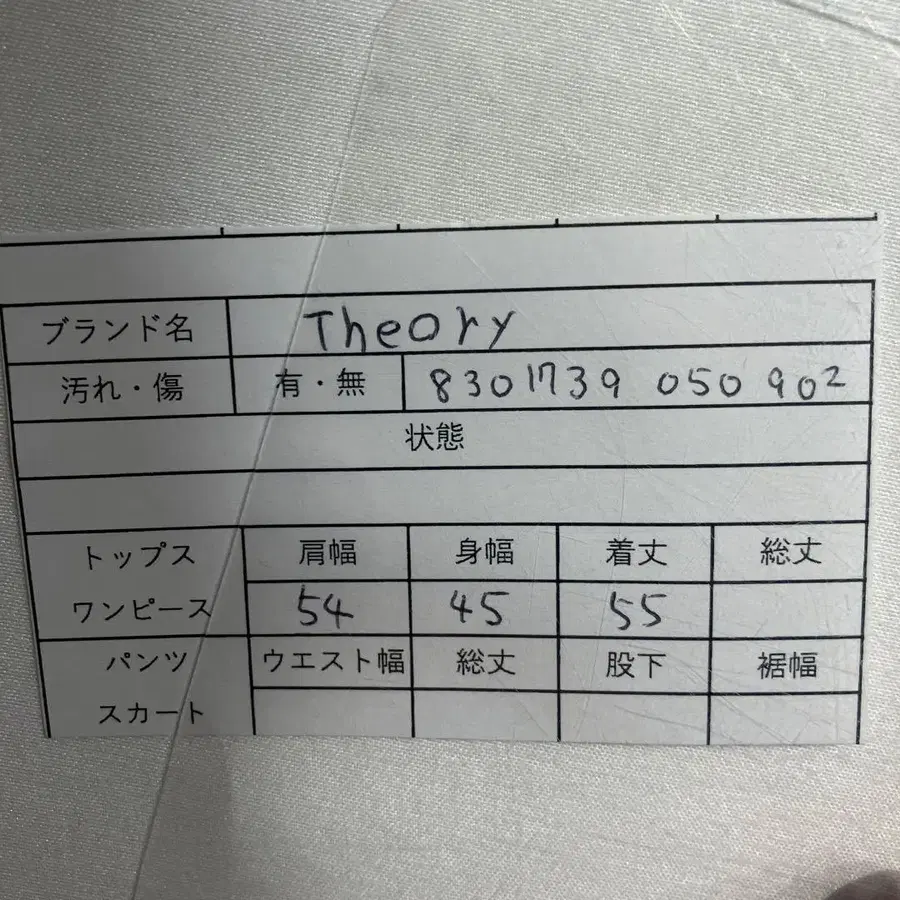 ブランド名 Theory
汚れ・傷 有・無 8301739 050 902
状態
トップス 肩幅 身幅 着丈 総丈
ワンピース 54 45 55
パンツ ウエスト幅 総丈 股下 裾幅
スカート